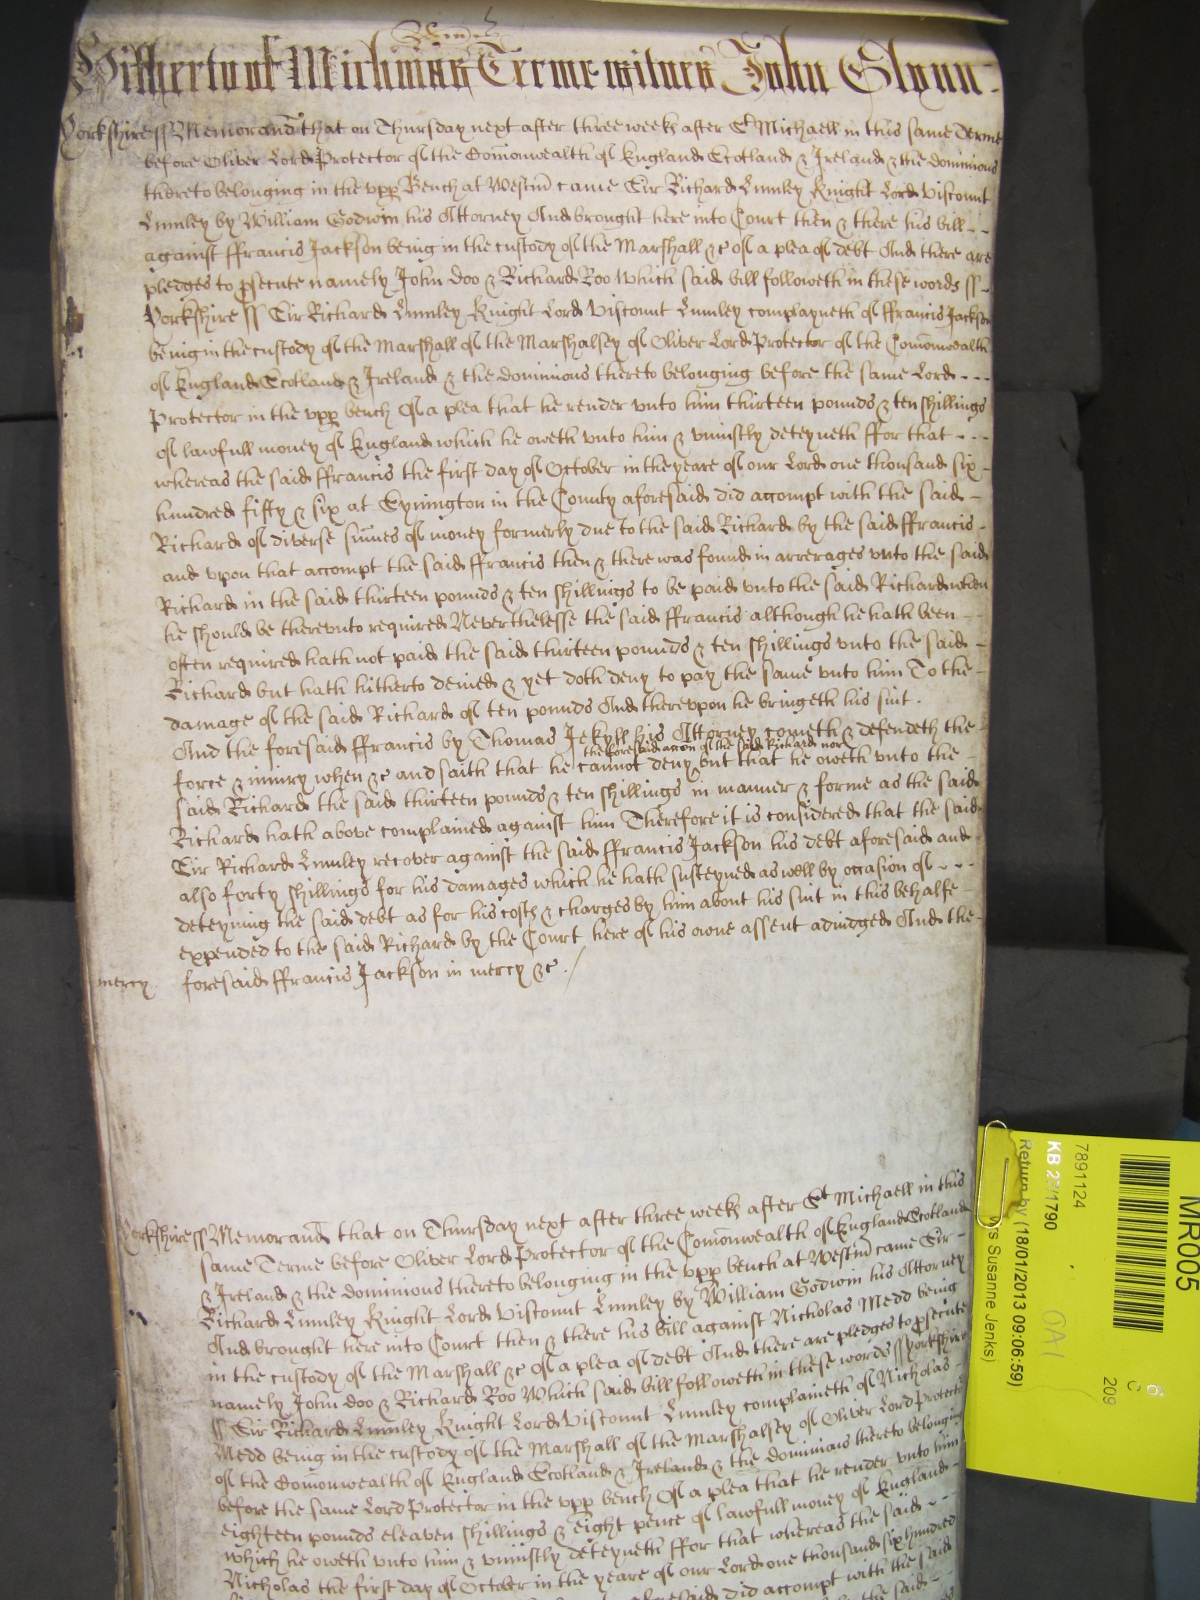 Hitherto of Michmas Terme witnes John Glynn -
Yorkshire ss Memorand that on Thursday next after three weeks after St Michaell in this same Terme
before Oliver Lord Protector of the Comonwealth of England Scotland & Ireland & the dominions
thereto belonging in the upp Bench at Westm came Sir Richard Lumley Knight Lord Viscount
Lumley by William Godwin his Attorney And brought here into Court then & there his bill - -
against ffrancis Jackson being in the custody of the Marshall &c of a plea of debt And there are
pledges to psecute namely John Doo & Richard Roo Which said bill followeth in these words ss -
Yorkshire ss Sir Richard Lumley Knight Lord Viscount Lumley complayneth of ffrancis Jackson
being in the custody of the Marshall of the Marshalsey of Oliver Lord Protector of the Comonwealth
of England Scotland & Ireland & the dominions thereto belonging before the same Lord - - -
Protector in the upp bench Of a plea that he render unto him thirteen pounds & ten shillings
of lawfull money of England which he oweth unto him & uniustly deteyneth ffor that - - -
whereas the said ffrancis the first day of October in the yeare of our Lord one thousand six -
hundred fifty & six at in the County aforesaid did accompt with the said -
Richard of diverse sumes of money formerly due to the said Richard by the said ffrancis -
and upon that accompt the said ffrancis then & there was found in arrerages unto the said
Richard in the said thirteen pounds & ten shillings to be paid unto the said Richard when
he should be thereunto required Neverthelesse the said ffrancis although he hath been -
often required hath not paid the said thirteen pounds & ten shillings unto the said -
Richard but hath hitherto denied & yet doth deny to pay the same unto him To the -
damage of the said Richard of ten pounds And thereupon he bringeth his suit .
And the foresaid ffrancis by Thomas Jekyll his Attorney cometh & defendeth the
force & iniury when &c and saith that he cannot deny the foresaid accon of the said Richard nor but that he oweth unto the -
said Richard the said thirteen pounds & ten shillings in manner & forme as the said
Richard hath above complained against him Therefore it is considered that the said
Sir Richard Lumley recover against the said ffrancis Jackson his debt aforesaid and -
also forty shillings for his damages which he hath susteyned as well by occasion of - - -
deteyning the said debt as for his costs & charges by him about his suit in this behalfe -
expended to the said Richard by the Court here of his owne assent adiudged And the -
mercy foresaid ffrancis Jackson in mercy &c . /
Yorkshire ss Memorand that on Thursday next after three weeks after St Michaell in this
same Terme before Oliver Lord Protector of the Comonwealth of England Scotland
& Ireland & the dominions thereto belonging in the upp bench at Westm came Sir -
Richard Lumley Knight Lord Viscount Lumley by William Godwin his Attorney
And brought here into Court then & there his bill against Nicholas Medd being
in the custody of the Marshall &c of a plea of debt And there are pledges to psecute
namely John Doo & Richard Roo Which said bill followeth in these words ss Yorkshire
ss Sir Richard Lumley Knight Lord Viscount Lumley complaineth of Nicholas -
Medd being in the custody of the Marshall of the Marshalsey of Oliver Lord Protector
of the Comonwealth of England Scotland & Ireland & the dominions thereto belonging
before the same Lord Protector in the upp bench Of a plea that he render unto him
eighteen pounds eleaven shillings & eight pence of lawfull money of England -
which he oweth unto him & uniustly deteyneth ffor that whereas the said - -
Nicholas the first day of October in the yeare of our Lord one thousand six hundred
aforesaid did accompt with the said
the said -
MR005
7891124
KB 27/1790
Return by (18/01/2013 09:06:59)
rs Susanne Jenks)
OA1
6
C
209